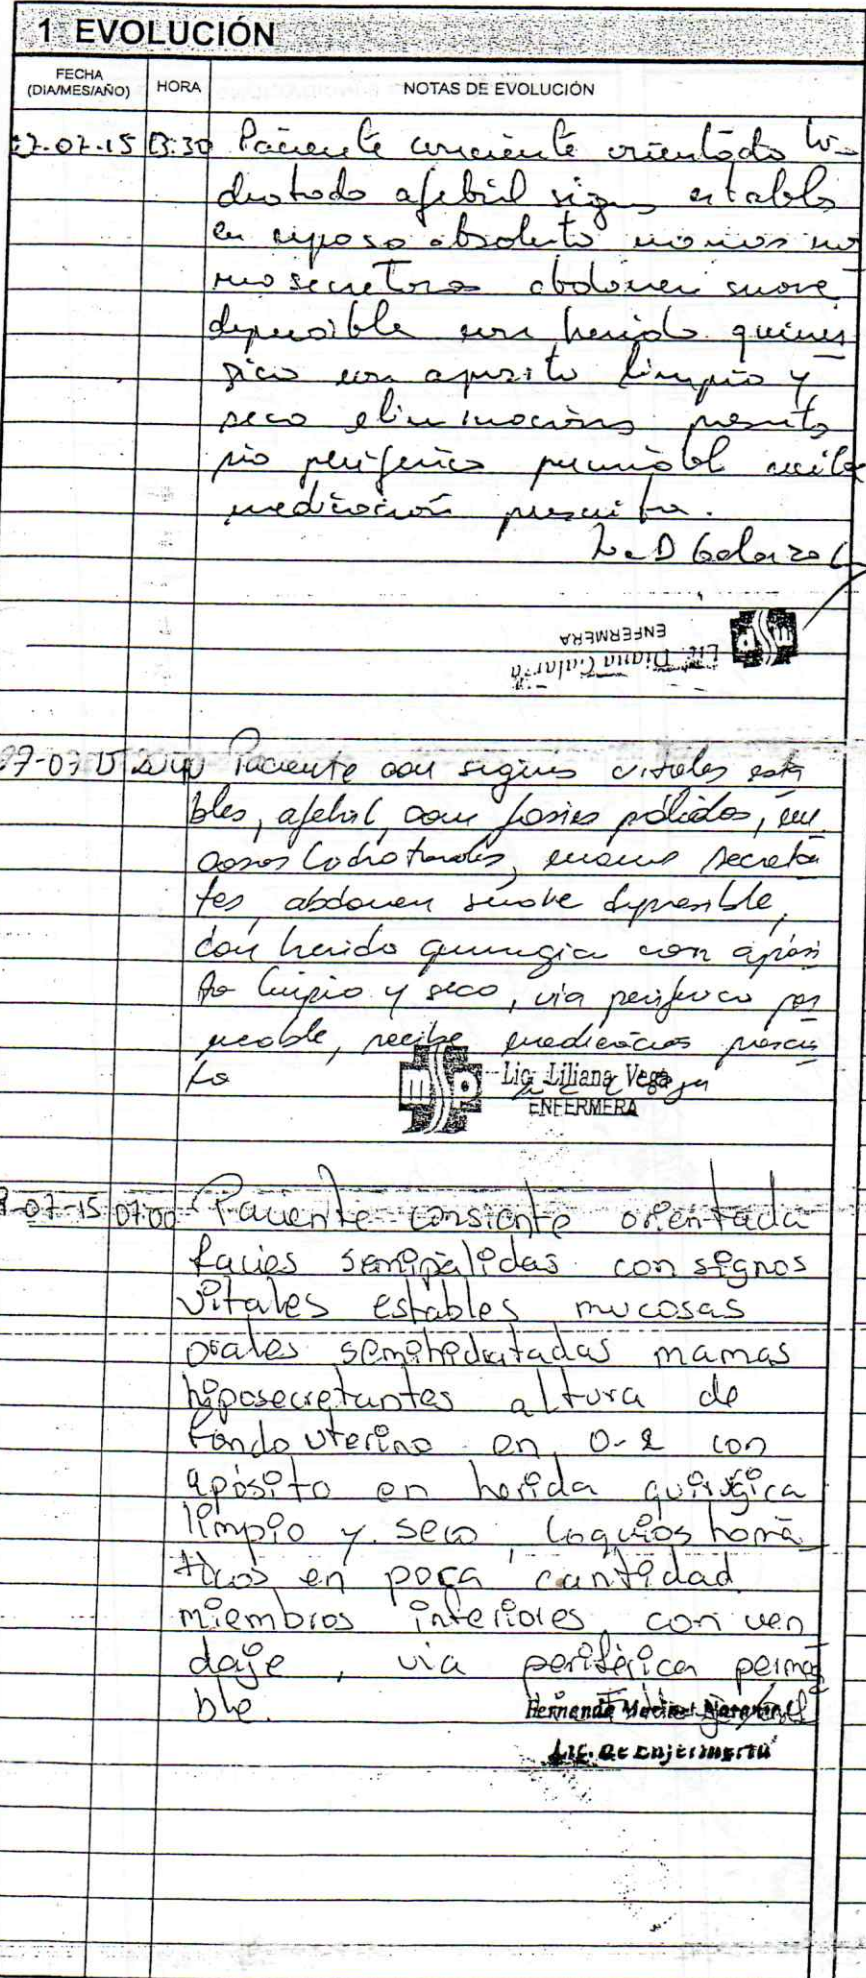 1 EVOLUCIÓN
FECHA HORA NOTAS DE EVOLUCIÓN
(DIA/MES/AÑO)
07-15 13:30 Paciente conciente orientado hi-
dratado afebril signos estables
en reposo absoluto mamas no
secretoras abdomen suave
depresible con herida quirur
gica con aposito limpio y
seco eliminaciones presente
periferica permiable recibe
medicación prescrita.
Lic D Galarza
ENFERMERA
Lic. Diana Galarza
07-15 Paciente con signos vitales esta
bles, afebril, con facies pálidas, mu
cosas hidratadas, mamas secretan
tes, abdomen suave depresible,
con herida quirurgica con aposi
to limpio y seco, via periferica per
meable, recibe medicación prescri
ta
msp Lic. Liliana Vega
ENFERMERA
-07-15 07:00 Paciente consiente orientada
facies semipálidas con signos
vitales estables mucosas
orales semihedratadas mamas
hiposecretantes altura de
fondo uterino en 0-2 con
apósito en herida quirúgica
limpio y seco, loquios hemá
ticos en poca cantidad
miembros inferiores con ven
daje, via periférica permea
ble.
Lic. de Enfermería